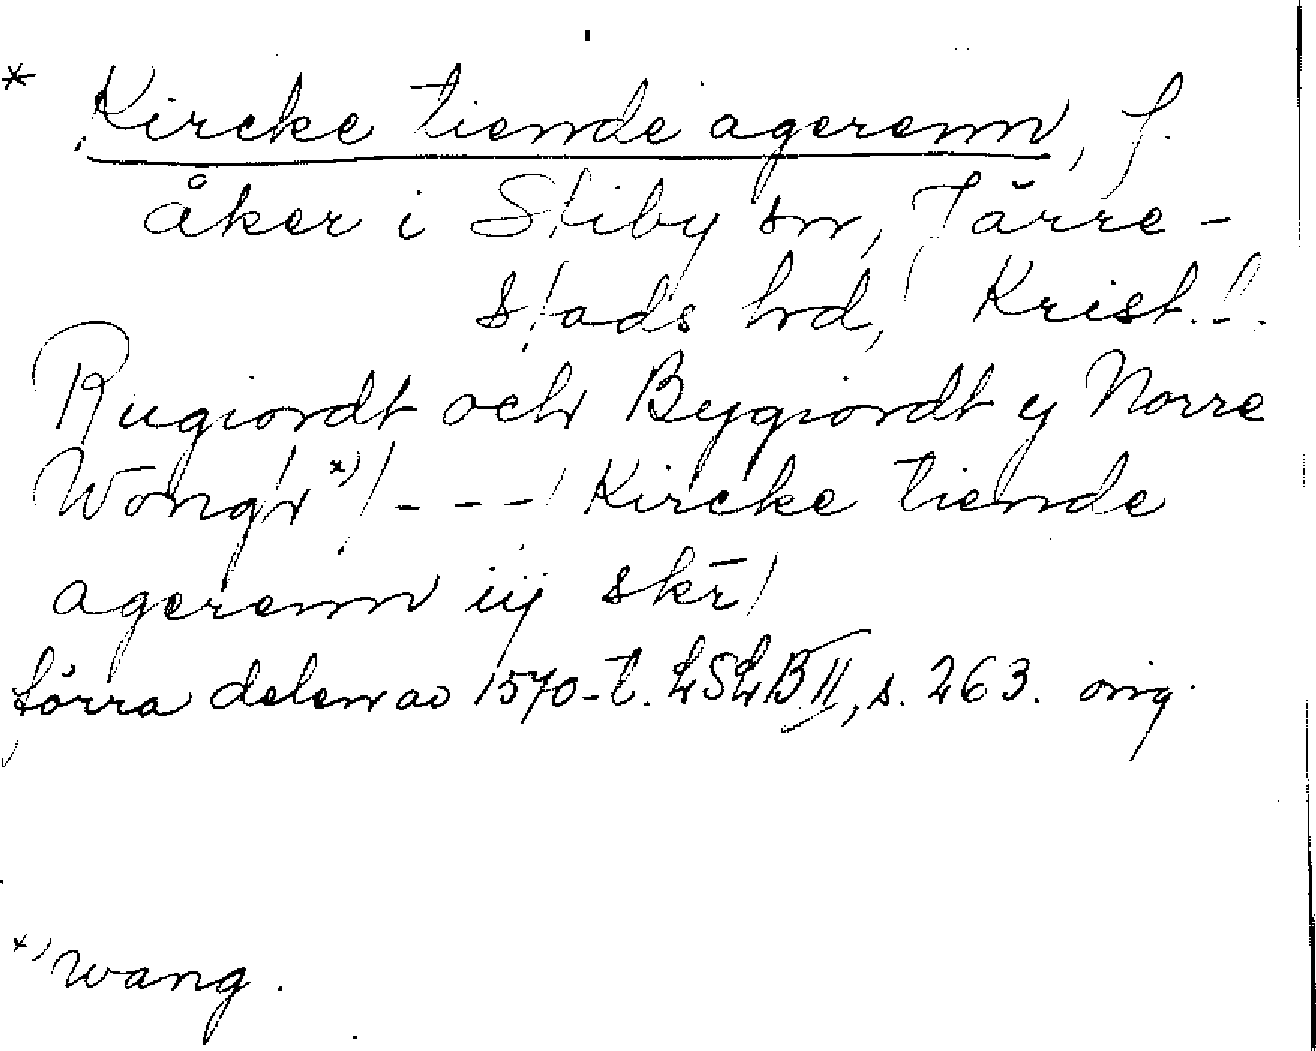 * Kircke tiende agerenn, f.
åker i Stiby sn, Järre-
stads hd, Krist. l.
Rugiordt och Bygiordt y Norre
Wongh *) / - - - / Kircke tiende
agerenn iij skr̄ /
förra delen av 1570-t. LSLB II, s. 263. orig.
*) Wang.